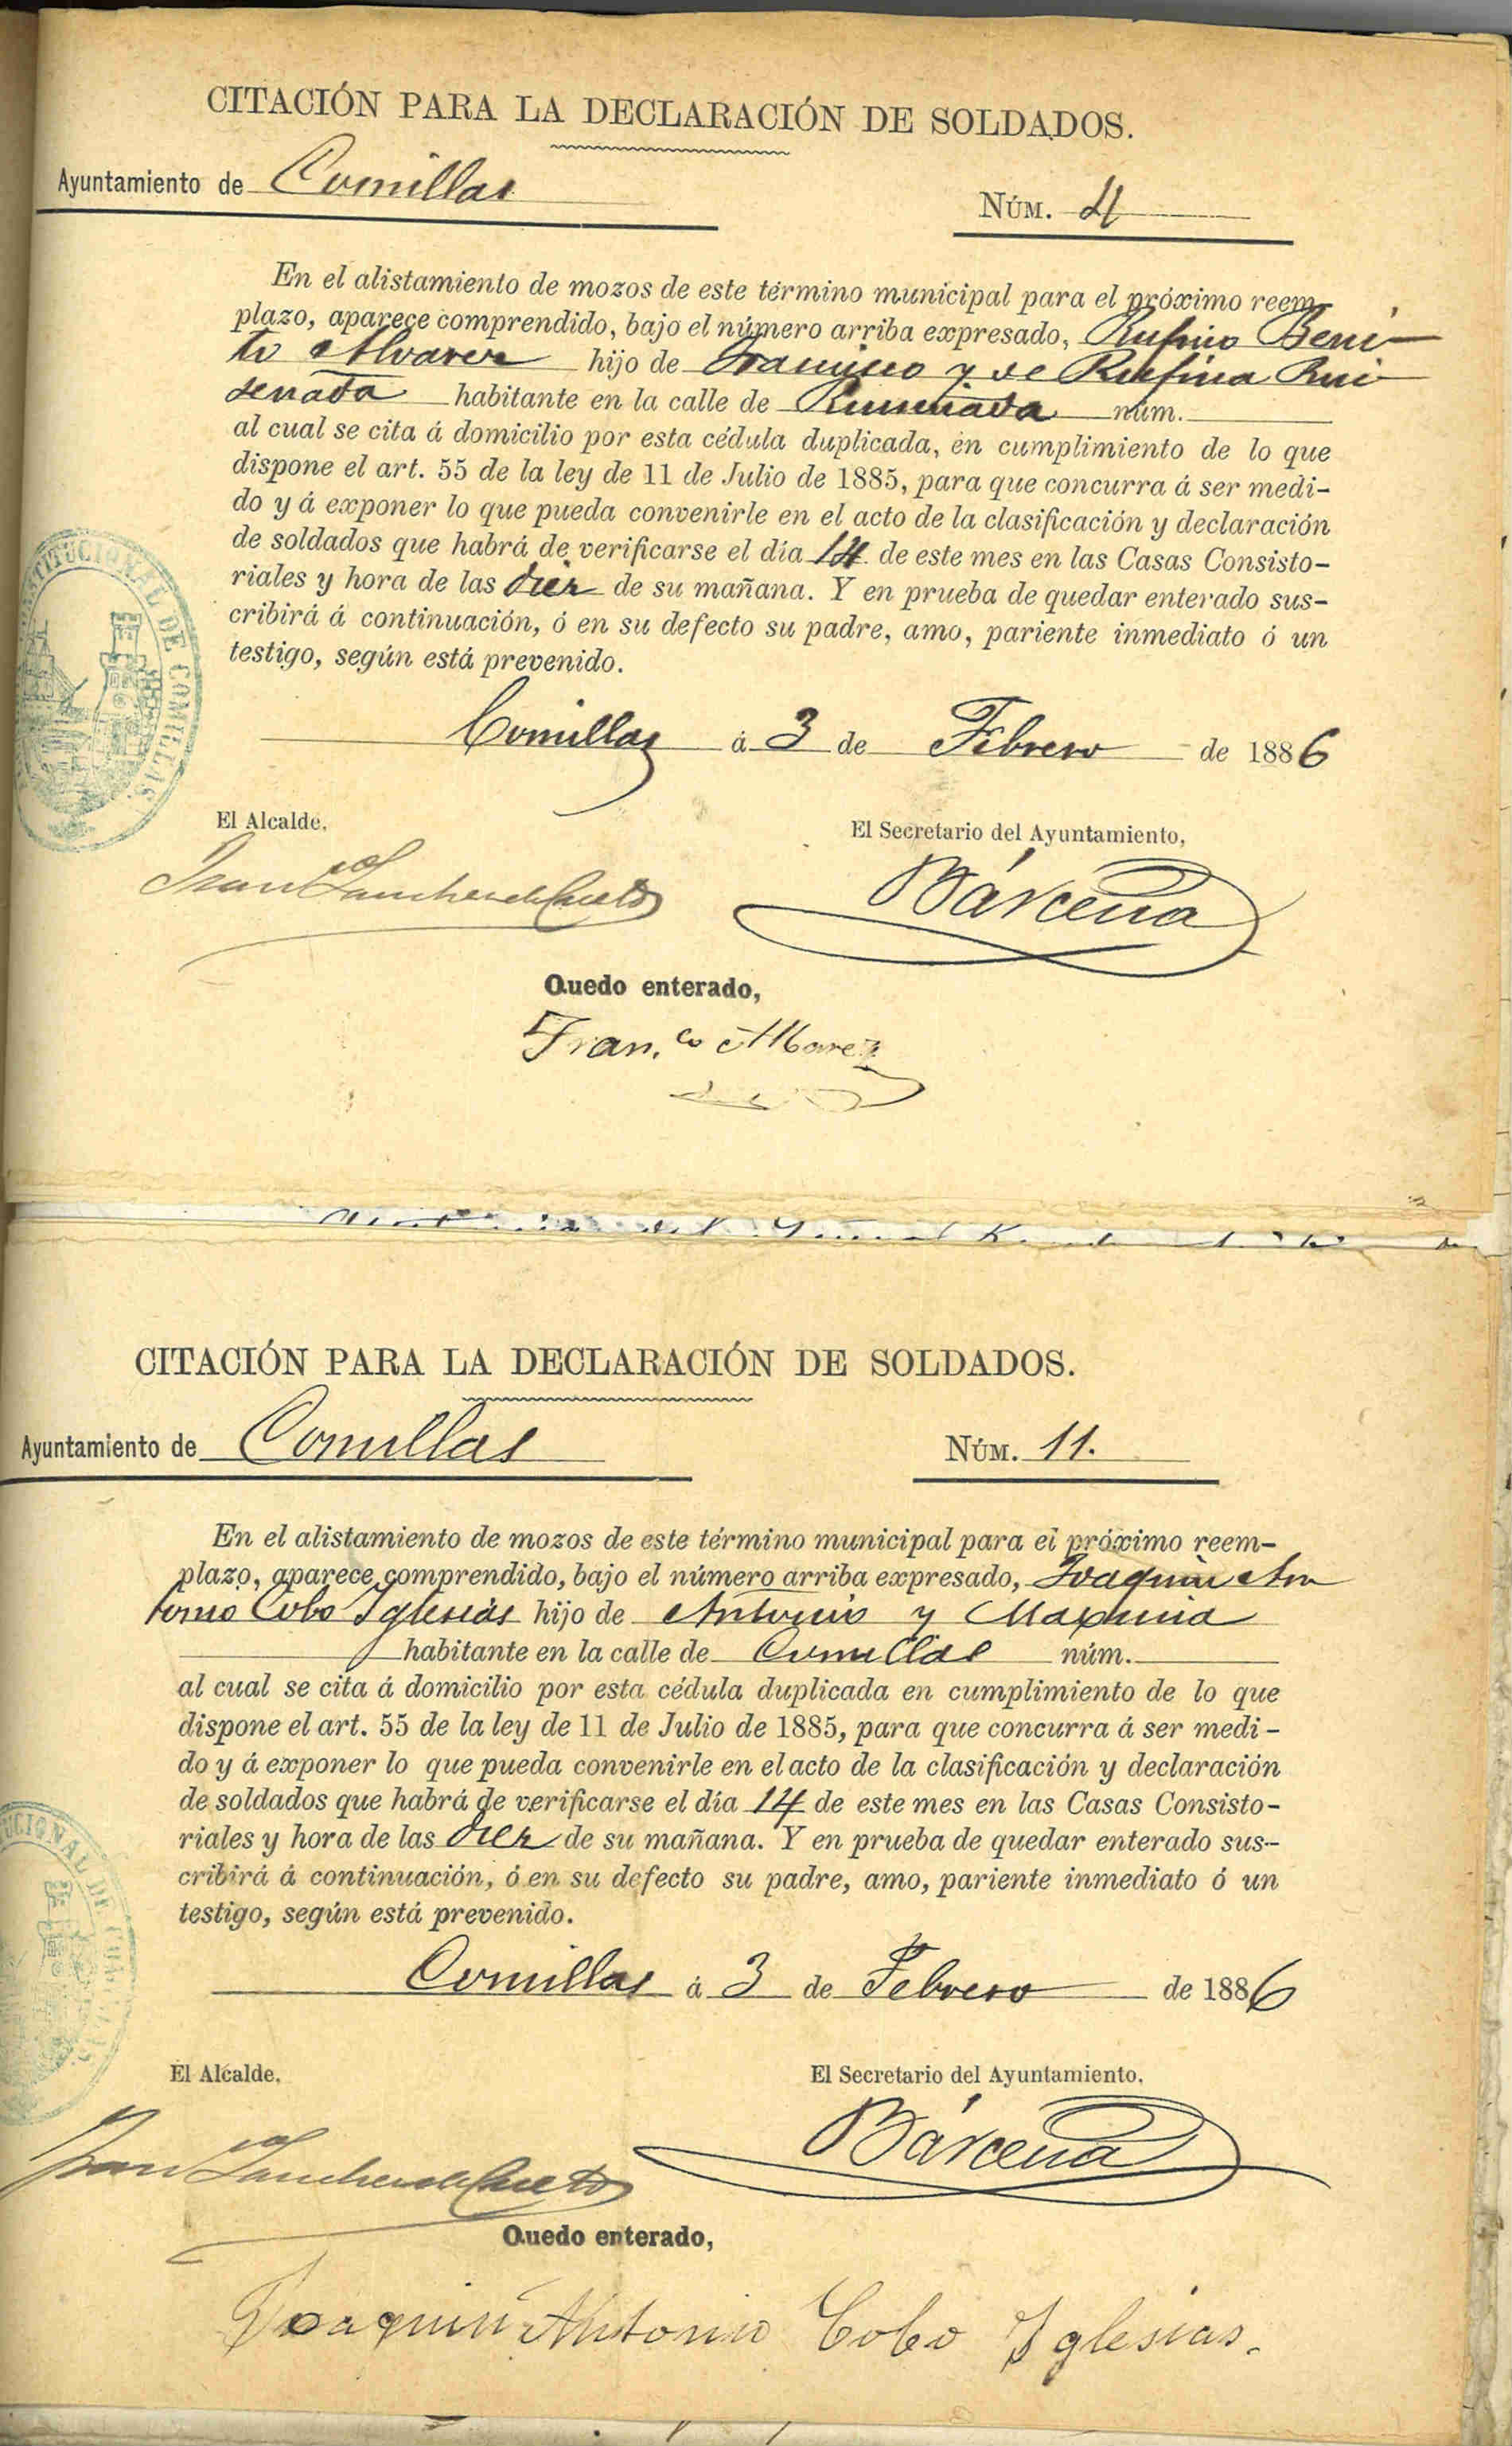 CITACIÓN PARA LA DECLARACIÓN DE SOLDADOS.
Ayuntamiento de Comillas
NÚM. 4
En el alistamiento de mozos de este término municipal para el próximo reem-
plazo, aparece comprendido, bajo el número arriba expresado, Rufino Beni-
to Alvarez hijo de Francisco y de Rufina Rui
senada habitante en la calle de Ruiseñada núm.
al cual se cita á domicilio por esta cédula duplicada, en cumplimiento de lo que
dispone el art. 55 de la ley de 11 de Julio de 1885, para que concurra á ser medi-
do y á exponer lo que pueda convenirle en el acto de la clasificación y declaración
de soldados que habrá de verificarse el día 14 de este mes en las Casas Consisto-
riales y hora de las diez de su mañana. Y en prueba de quedar enterado sus-
cribirá á continuación, ó en su defecto su padre, amo, pariente inmediato ó un
testigo, según está prevenido.
CONSTITUCIONAL DE COMILLAS
Comillas á 3 de Febrero de 1886
El Alcalde,
El Secretario del Ayuntamiento,
Juan Sanchez de Cueto
Bárcena
Quedo enterado,
Fran.co Alvarez
CITACIÓN PARA LA DECLARACIÓN DE SOLDADOS.
Ayuntamiento de Comillas
NÚM. 11.
En el alistamiento de mozos de este término municipal para el próximo reem-
plazo, aparece comprendido, bajo el número arriba expresado, Joaquin An
tonio Cobo Iglesias hijo de Antonio y Maximina
habitante en la calle de Comillas núm.
al cual se cita á domicilio por esta cédula duplicada en cumplimiento de lo que
dispone el art. 55 de la ley de 11 de Julio de 1885, para que concurra á ser medi-
do y á exponer lo que pueda convenirle en el acto de la clasificación y declaración
de soldados que habrá de verificarse el día 14 de este mes en las Casas Consisto-
riales y hora de las diez de su mañana. Y en prueba de quedar enterado sus-
cribirá á continuación, ó en su defecto su padre, amo, pariente inmediato ó un
testigo, según está prevenido.
Comillas á 3 de Febrero de 1886
El Alcalde,
El Secretario del Ayuntamiento,
Juan Sanchez de Cueto
Bárcena
Quedo enterado,
Joaquin Antonio Cobo Iglesias.